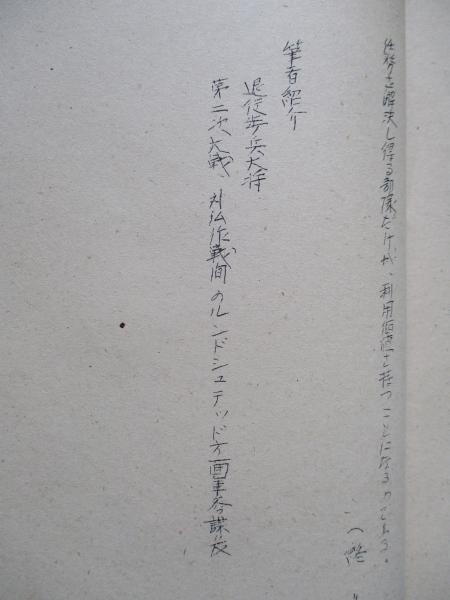 任務を解決し得る部隊だけが、利用価値を持つことになるのである。
(終)
筆者紹介
退役歩兵大将
第二次大戦、対仏作戦間のルンドシュテッド方面軍参謀長